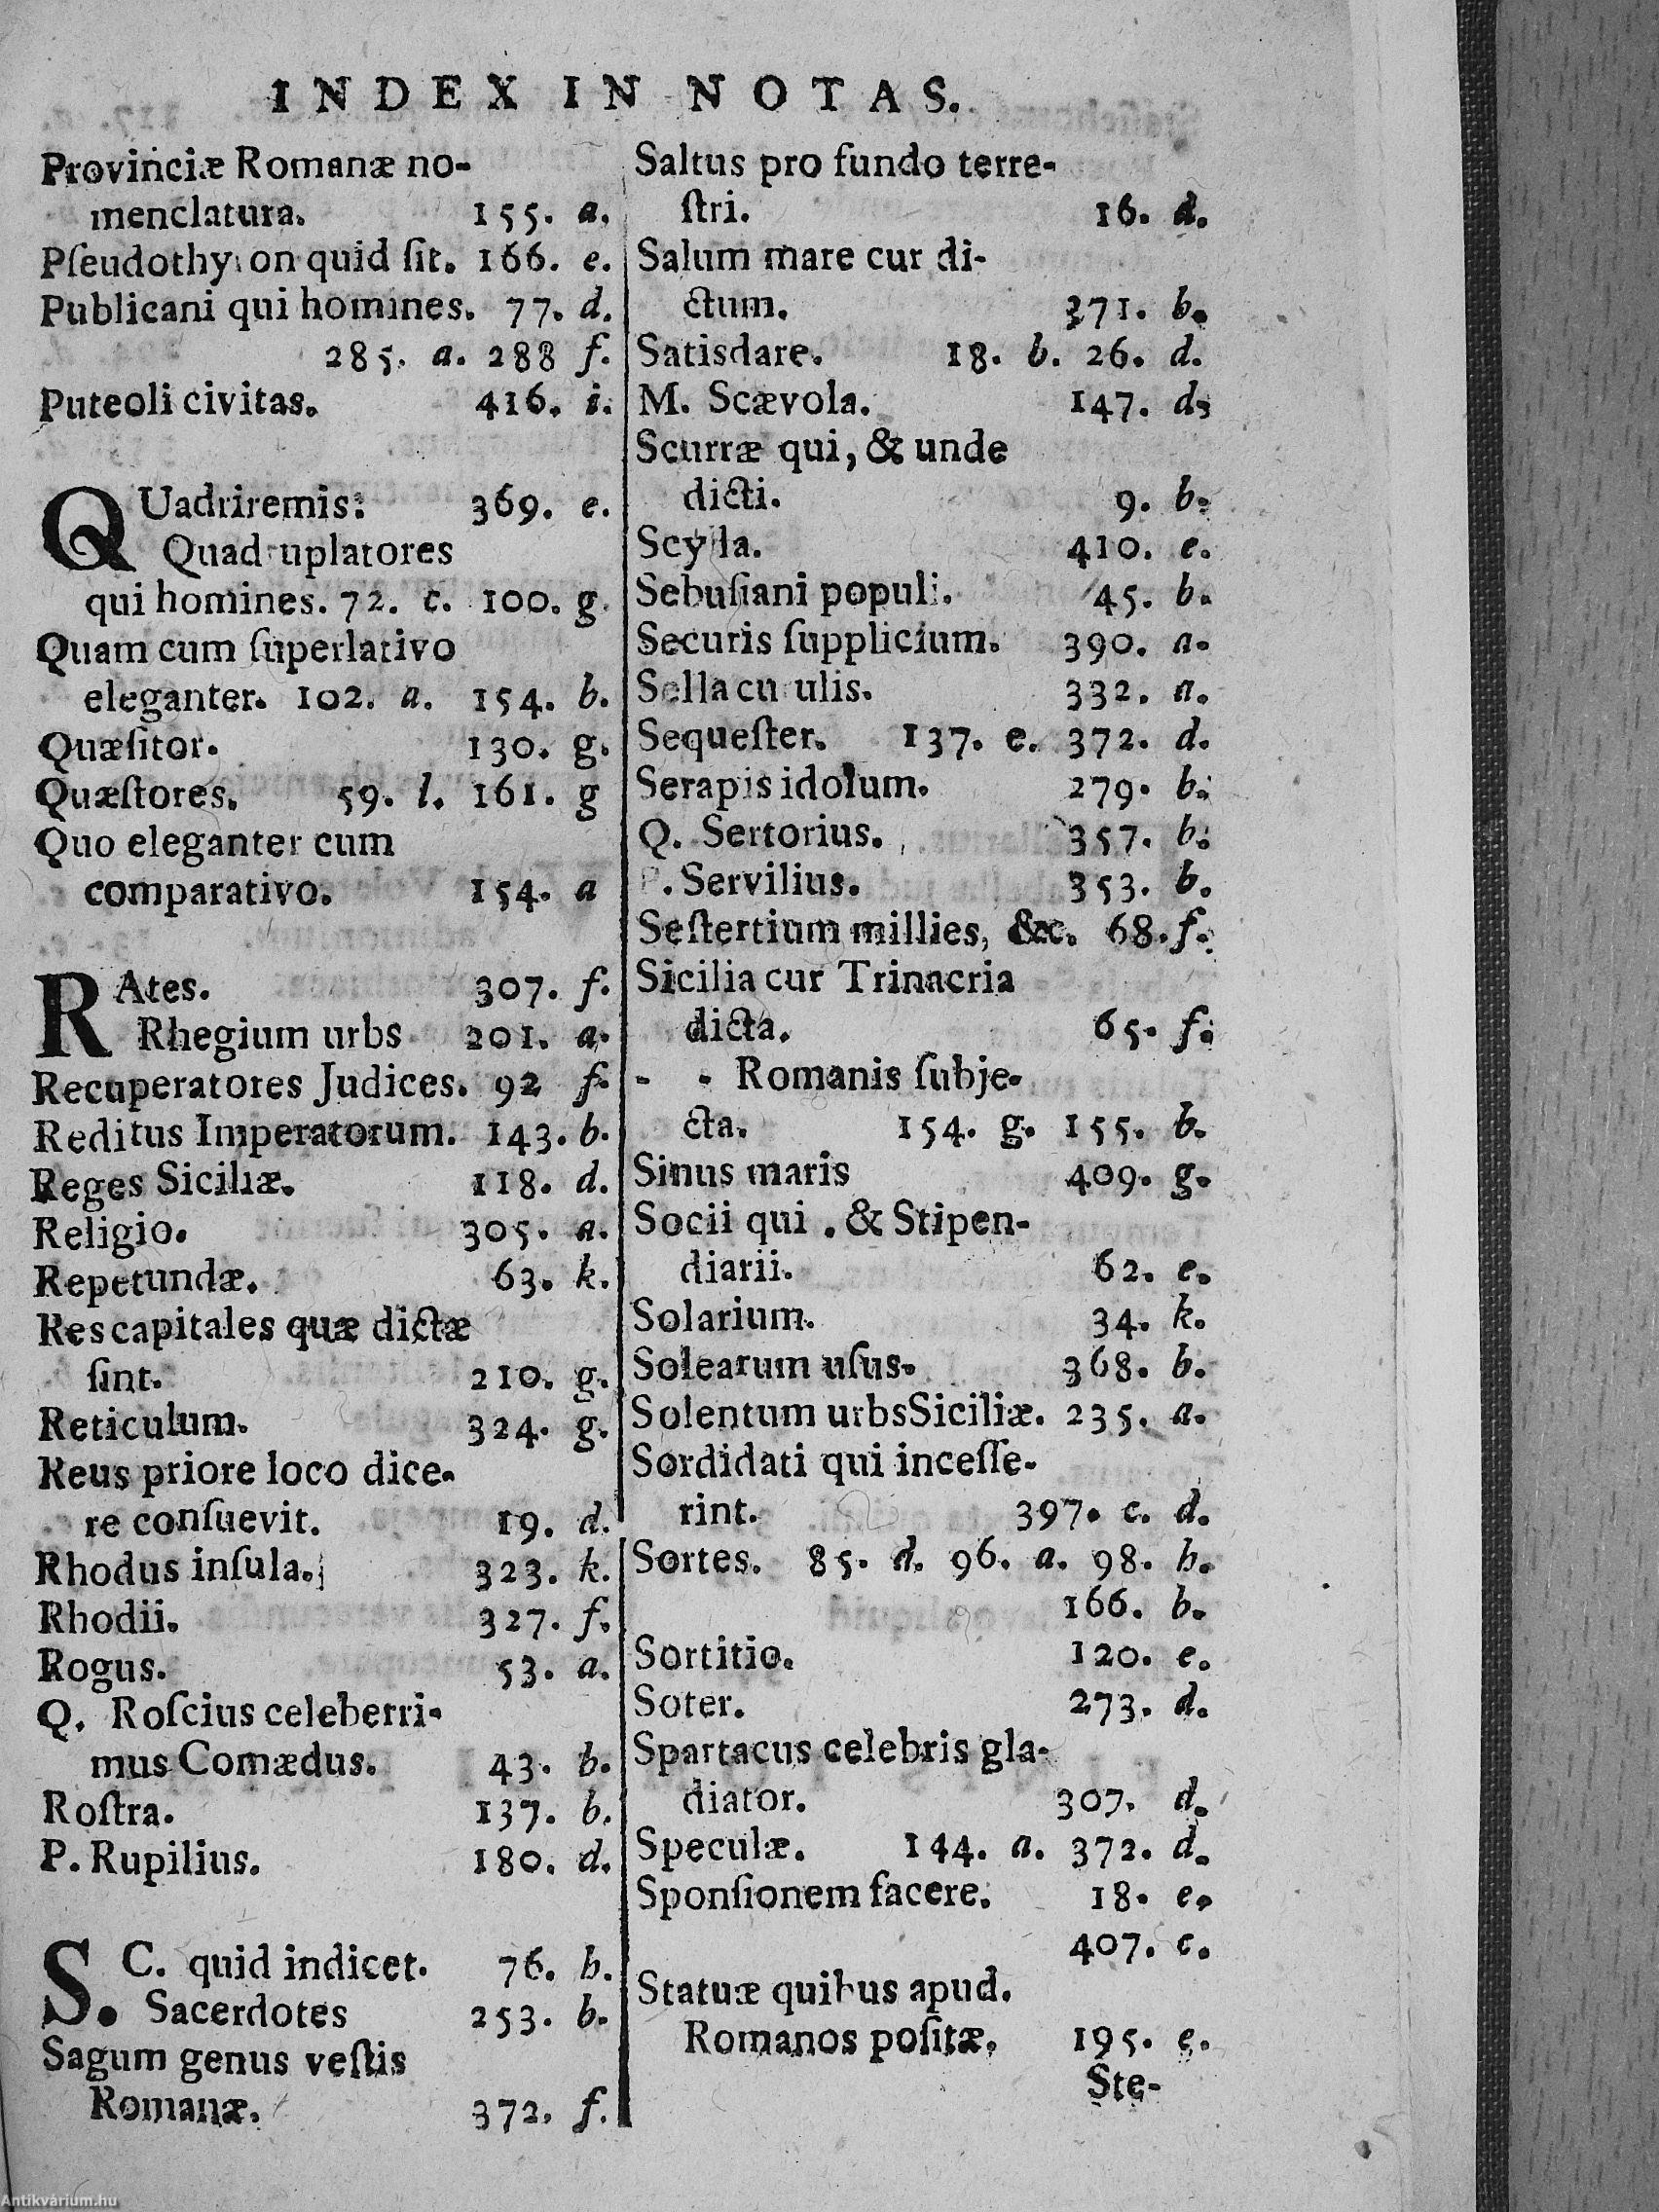 INDEX IN NOTAS.
Provinciæ Romanæ no-
menclatura. 155. a.
Pſeudothy on quid ſit. 166. e.
Publicani qui homines. 77. d.
285. a. 288 f.
Puteoli civitas. 416. i.
QUadriremis: 369. e.
Quadruplatores
qui homines. 72. c. 100. g.
Quam cum ſuperlativo
eleganter. 102. a. 154. b.
Quæſitor. 130. g.
Quæſtores. 59. l. 161. g
Quo eleganter cum
comparativo. 154. a
RAtes. 307. f.
Rhegium urbs 201. a.
Recuperatores Judices. 92 f.
Reditus Imperatorum. 143. b.
Reges Siciliæ. 118. d.
Religio. 305. a.
Repetundæ. 63. k.
Res capitales quæ dictæ
ſint. 210. g.
Reticulum. 324. g.
Reus priore loco dice-
re conſuevit. 19. d.
Rhodus inſula. 323. k.
Rhodii. 327. f.
Rogus. 53. a.
Q. Roſcius celeberri-
mus Comædus. 43. b.
Roſtra. 137. b.
P. Rupilius. 180. d.
S. C. quid indicet. 76. b.
Sacerdotes 253. b.
Sagum genus veſtis
Romanæ. 372. f.
Saltus pro fundo terre-
ſtri. 16. d.
Salum mare cur di-
ctum. 371. b.
Satisdare. 18. b. 26. d.
M. Scævola. 147. d.
Scurræ qui, & unde
dicti. 9. b.
Scylla. 410. e.
Sebuſiani populi. 45. b.
Securis ſupplicium. 390. a.
Sella cu ulis. 332. a.
Sequeſter. 137. e. 372. d.
Serapis idolum. 279. b.
Q. Sertorius. 357. b.
P. Servilius. 353. b.
Seſtertium millies, &c. 68. f.
Sicilia cur Trinacria
dicta. 65. f.
- - Romanis ſubje-
cta. 154. g. 155. b.
Sinus maris 409. g.
Socii qui . & Stipen-
diarii. 62. e.
Solarium. 34. k.
Solearum uſus. 368. b.
Solentum urbs Siciliæ. 235. a.
Sordidati qui inceſſe-
rint. 397. c. d.
Sortes. 85. d. 96. a. 98. b.
166. b.
Sortitio. 120. e.
Soter. 273. d.
Spartacus celebris gla-
diator. 307. d.
Speculæ. 144. a. 372. d.
Sponſionem facere. 18. e.
407. c.
Statuæ quibus apud.
Romanos poſitæ. 195. e.
Ste-
Antikvárium.hu